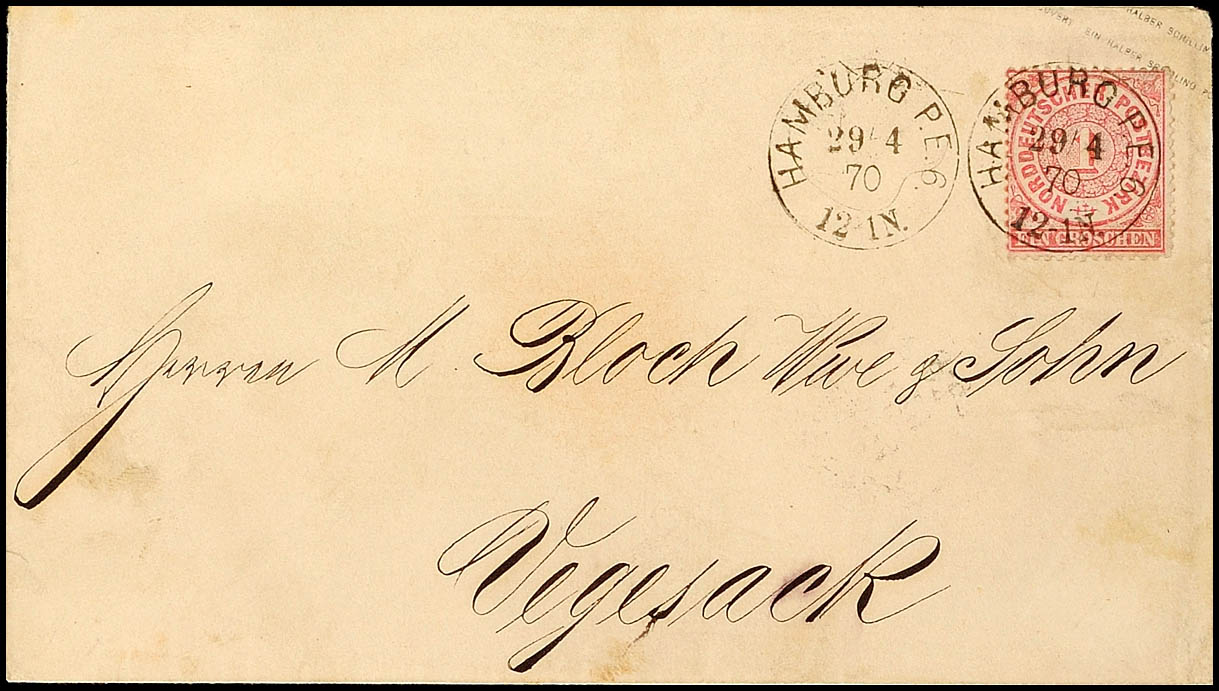 HALBER SCHILLIN
EIN HALBER
HAMBURG P.E.6.
29/4
70
12-1N.
HAMBURG P.E.6
29/4
70
12-1N
NORDDEUTSCHER POSTBEZIRK
1
EIN GROSCHEN
Herren M. Bloch Wwe & Sohn
Vegesack